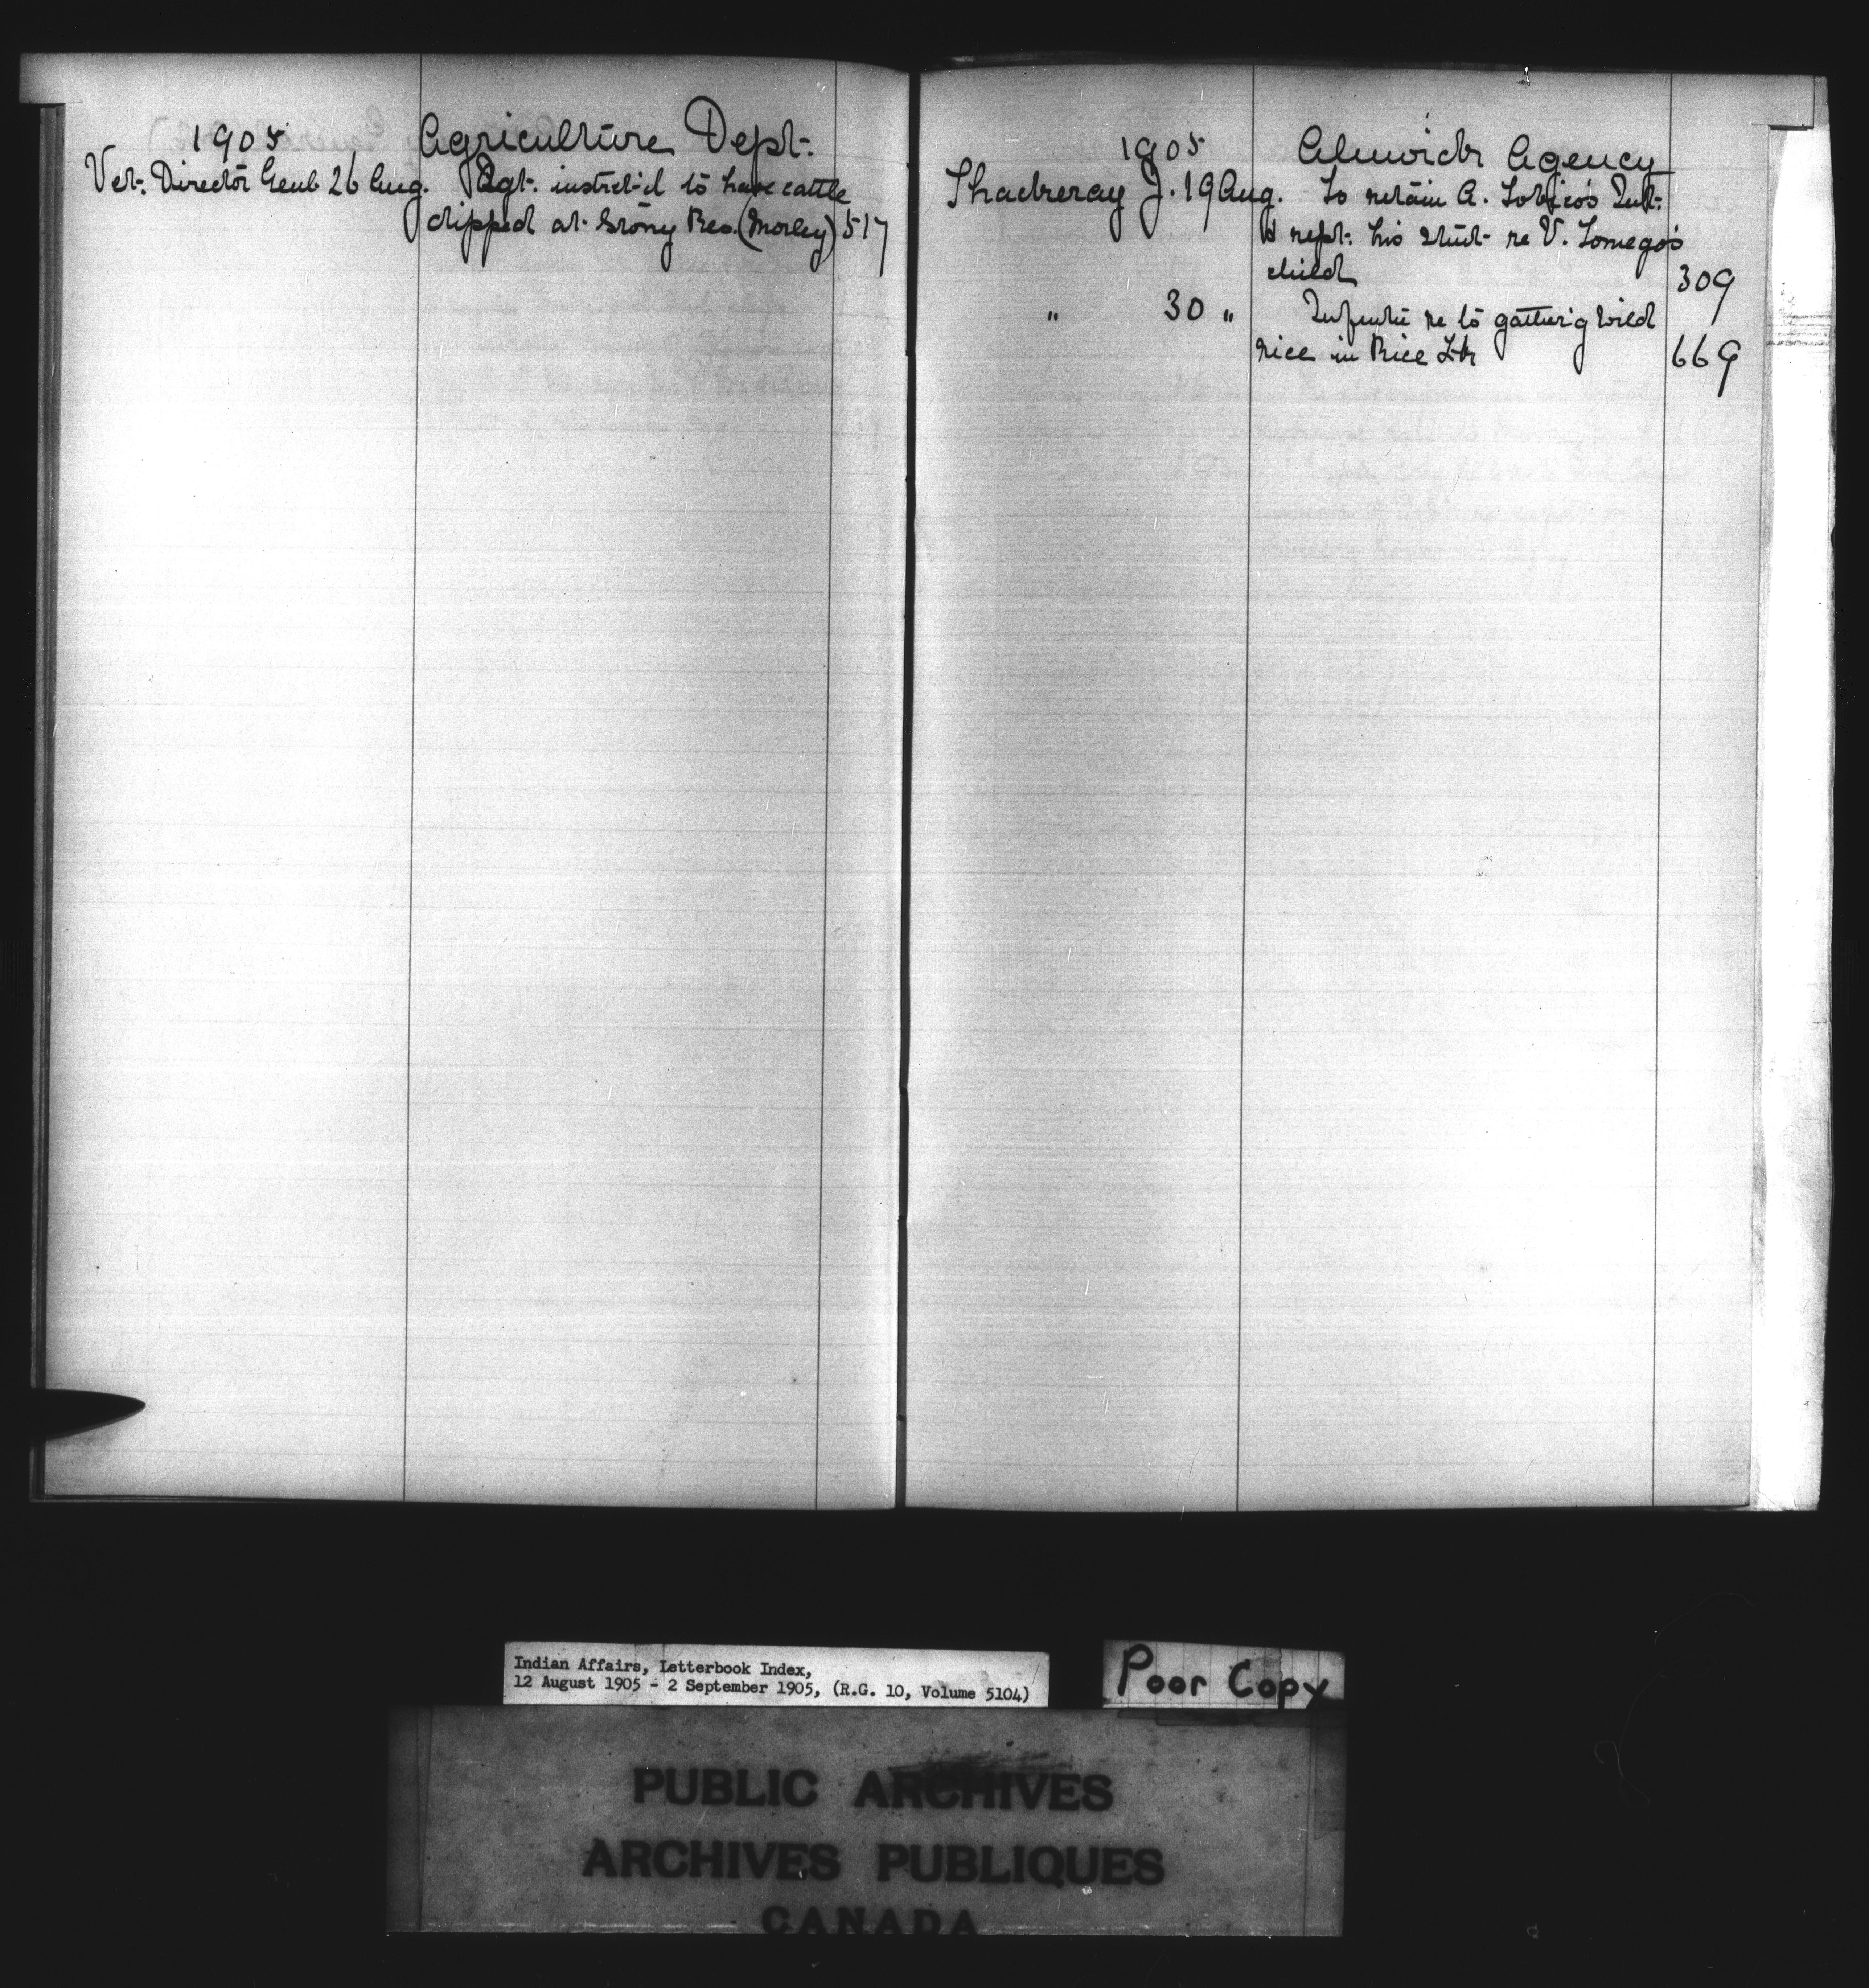 1905 Agriculture Dept.
Vet. Director Genl. 26 Aug. Agt. instrct'd to have cattle
dipped at Stony Res. (Morley) 517
1905 Alnwick Agency
Thackeray J. 19 Aug. To retain A. Tobico's Int.
& rept. his stmt. re V. Tomego's
child 309
" 30 " re to gather'g wild
rice in Rice Lk 669
Indian Affairs, Letterbook Index,
12 August 1905 - 2 September 1905, (R.G. 10, Volume 5104)
Poor Copy
PUBLIC ARCHIVES
ARCHIVES PUBLIQUES
CANADA